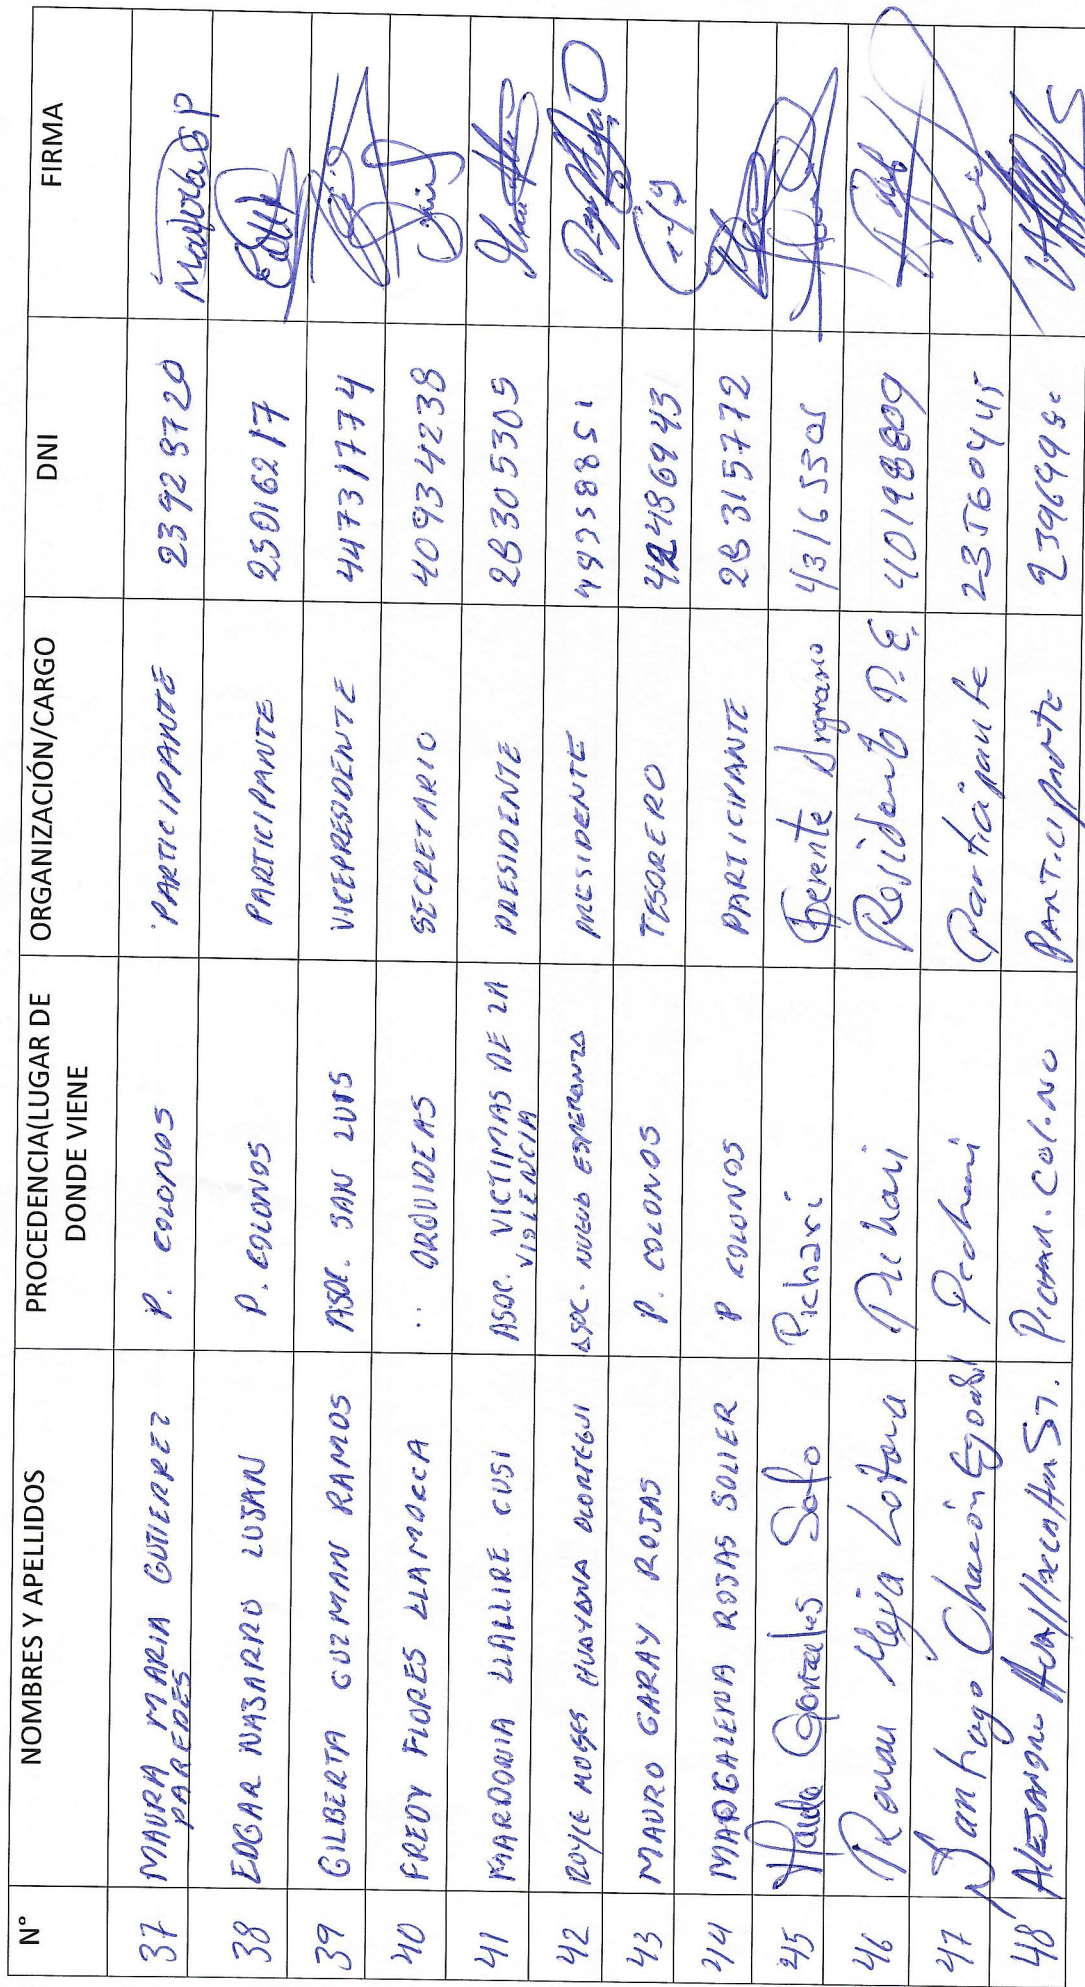 N° NOMBRES Y APELLIDOS PROCEDENCIA(LUGAR DE DONDE VIENE ORGANIZACIÓN/CARGO DNI FIRMA
37 MAURA MARIA GUTIERREZ PAREDES P. COLONOS PARTICIPANTE 23928720
38 EDGAR NAJARRO LUJAN P. COLONOS PARTICIPANTE 25016217
39 GILBERTA GUZMAN RAMOS ASOC. SAN LUIS VICEPRESIDENTE 44731774
40 FREDY FLORES LLAMOCCA .. ORQUIDEAS SECRETARIO 40934238
41 MARDONIA LLALLIRE CUSI ASOC. VICTIMAS DE LA VIOLENCIA PRESIDENTE 28305305
42 ROYLE MOISES HUAYANA OCORTEGUI ASOC. NUEVO ESPERANZA PRESIDENTE
43 MAURO GARAY ROJAS P. COLONOS TESORERO
44 MAGALENA ROJAS SOLIER P COLONOS PARTICIPANTE 28315772
45 Gonzales Soto Pichari Gerente Agrario
46 Roman Mejia Lotora Pichari Residente P.E. 40198809
47 Santiago Chacón Pichari Participante 23560445
48 ALEJANDRO Pichari. COLONO PARTICIPANTE